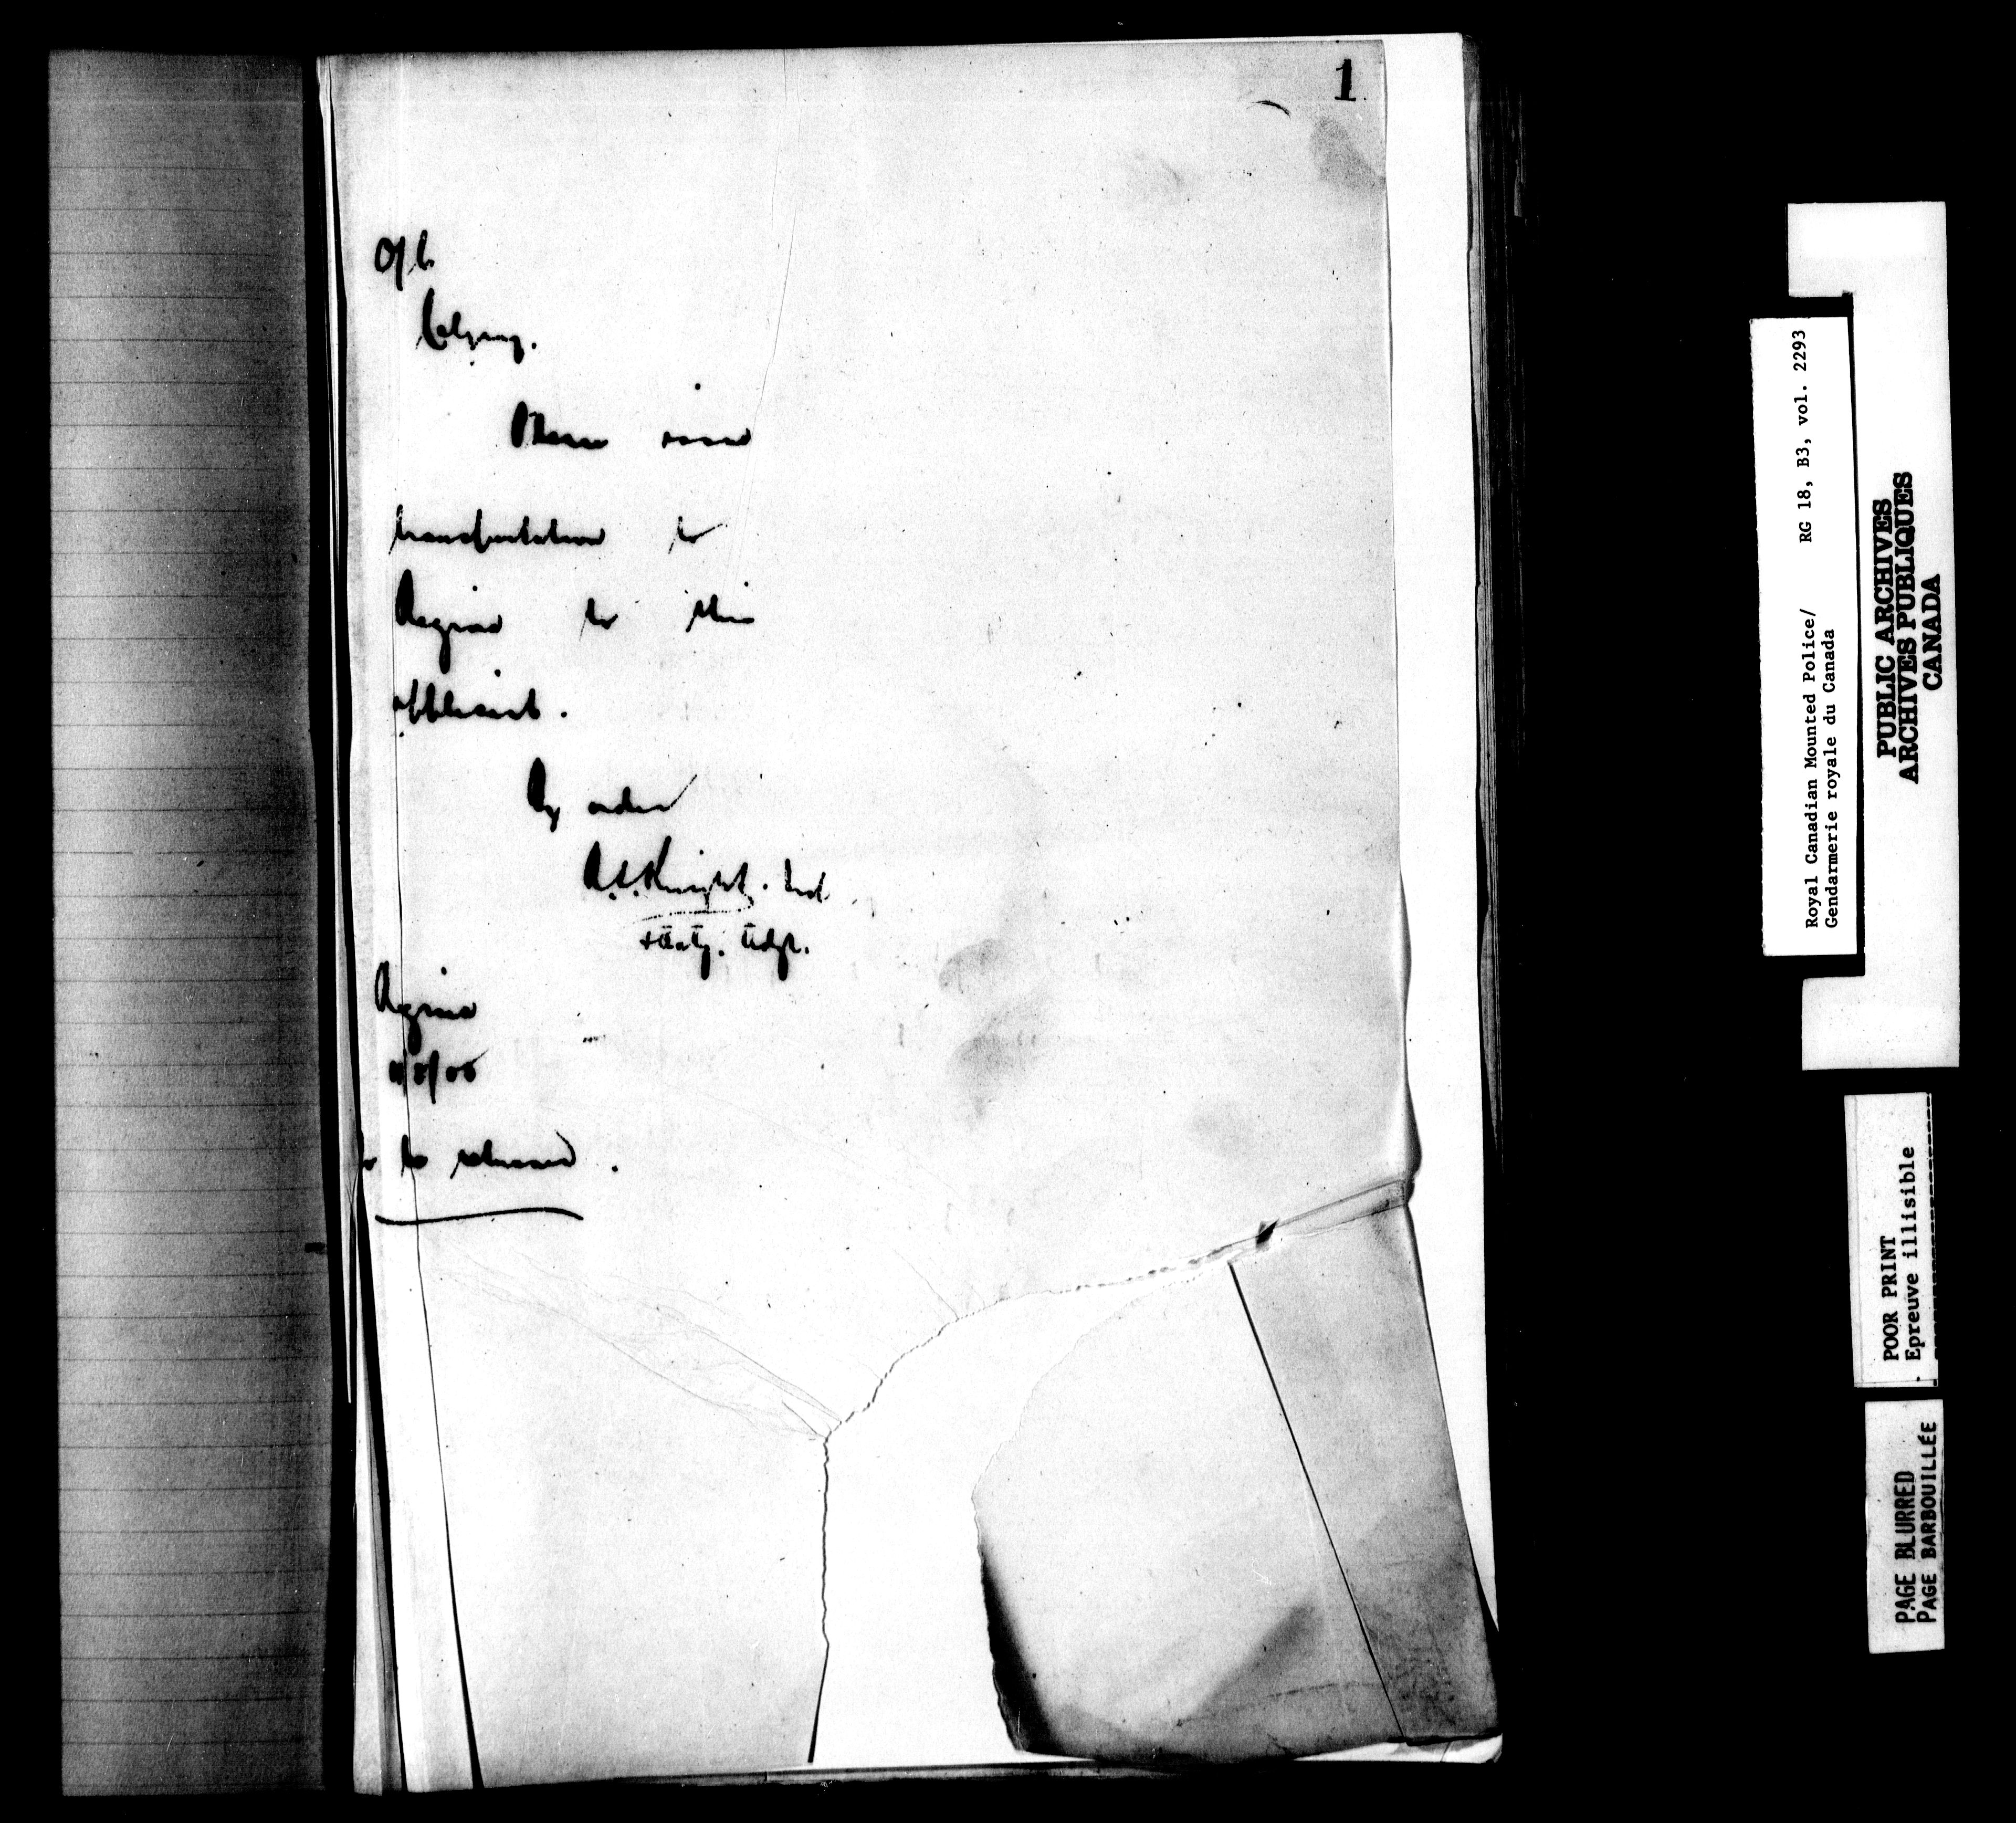 1
O/C.
Calgary.
Please issue
transportation to
Regina to this
applicant.
By order
Knight. Insp
Actg. Adjt.
Regina
to be returned.
Royal Canadian Mounted Police/ RG 18, B3, vol. 2293
Gendarmerie royale du Canada
PUBLIC ARCHIVES
ARCHIVES PUBLIQUES
CANADA
POOR PRINT
Epreuve illisible
PAGE BLURRED
PAGE BARBOUILLÉE